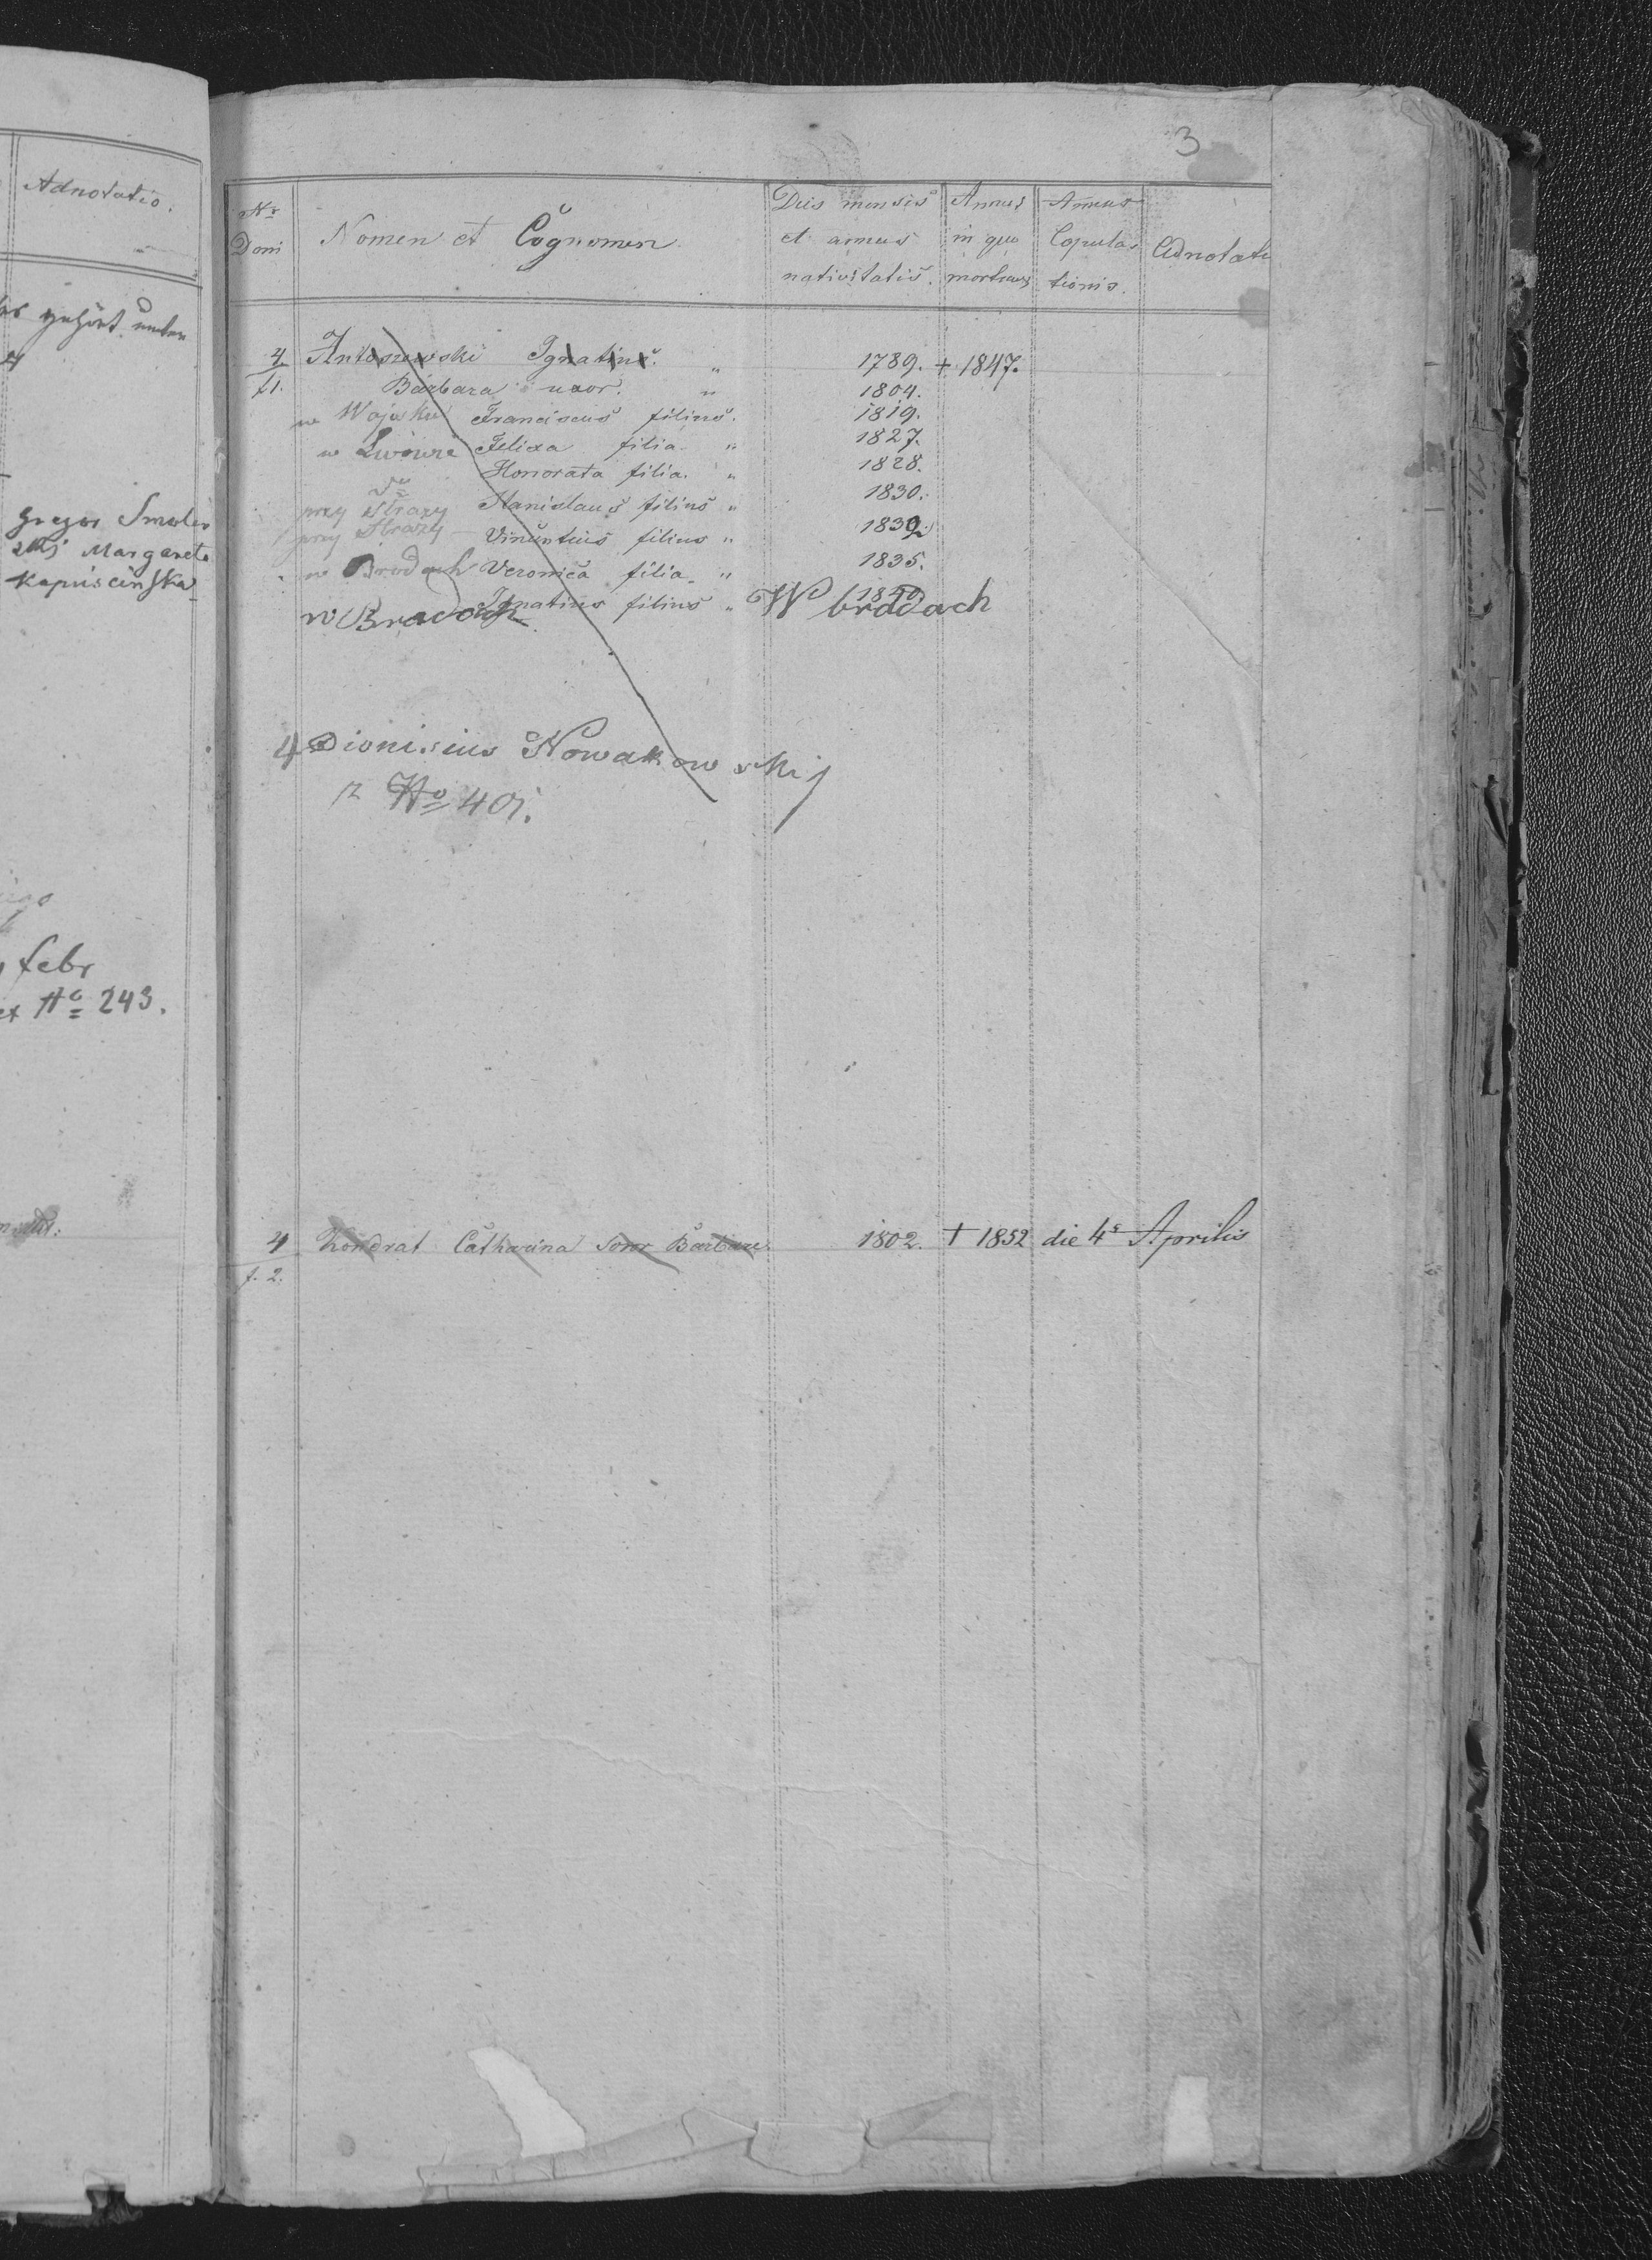 Adnotatio.
gehört
Gregor Smoler
Margareta
Kapuscinska
febr
No 243.
3
Nr Domi
Nomen et Cognomen
Dies mensis et annus nativitatis.
Annus in quo mortuus
Annus Copulationis.
Adnotati
4 Antoszewski Ignatius. " 1789. + 1847.
f1. Barbara uxor. " 1804.
w Wojsku Franciscus filius. 1819.
w Lwowie Felixa filia " 1827.
Honorata filia. " 1828.
przy Strazy Stanislaus filius " 1830.
przy Strazy Vincentius filius " 1832
w Brodach Veronica filia " 1835.
w Brodach Ignatius filius " 1840 W brodach
4 Dionisius Nowakowskij
z No 401.
4 Kondrat Catharina Soror Barbare 1802. + 1852 die 4a Aprilis
f. 2.